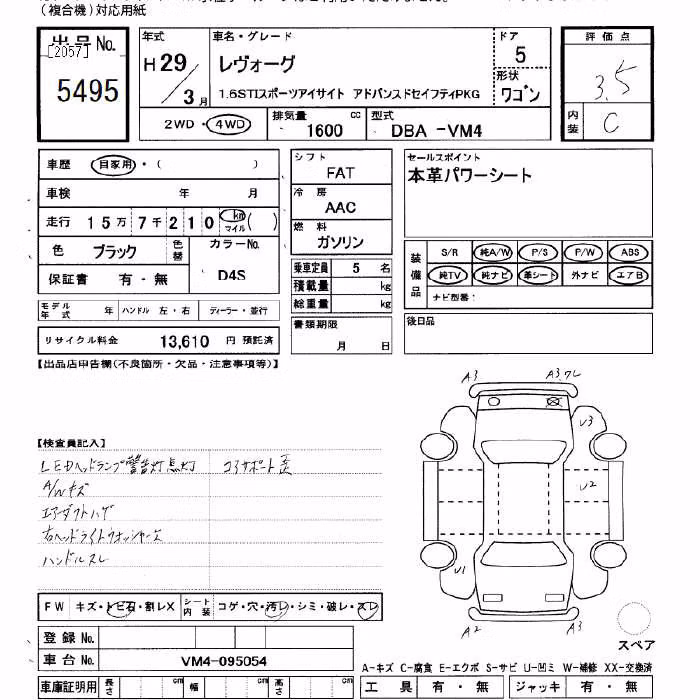 (複合機)対応用紙
出品No.
[2057]
5495
年式
H29/3月
車名・グレード
レヴォーグ
1.6STIスポーツアイサイト アドバンスドセイフティPKG
ドア
5
形状
ワゴン
2WD・4WD
排気量 cc
1600
型式
DBA -VM4
評価点
3.5
内装
C
車歴 自家用・( )
車検 年 月
走行 15万7千210 km マイル ( )
色 ブラック 色替 カラーNo.
保証書 有・無 D4S
モデル年式 年 ハンドル 左・右 ディーラー・並行
リサイクル料金 13,610 円 預託済
シフト
FAT
冷房
AAC
燃料
ガソリン
乗車定員 5 名
積載量 kg
総重量 kg
書類期限
月 日
セールスポイント
本革パワーシート
装備品
S/R 純A/W P/S P/W ABS
純TV 純ナビ 革シート 外ナビ エアB
ナビ型番:
後日品
【出品店申告欄(不良箇所・欠品・注意事項等)】
【検査員記入】
LEDヘッドランプ警告灯点灯 コアサポート歪
A/Wキズ
エアダクトハゲ
右ヘッドライトウォッシャーズレ
ハンドルスレ
A3
A3.7L
U3
U2
U1
A2
A3
スペア
FW キズ・トビ石・割レX シート内装 コゲ・穴・汚レ・シミ・破レ・スレ
登録No.
車台No. VM4-095054
車庫証明用 長さ cm 幅 cm 高さ cm
A-キズ C-腐食 E-エクボ S-サビ U-凹ミ W-補修 XX-交換済
工具 有・無 ジャッキ 有・無